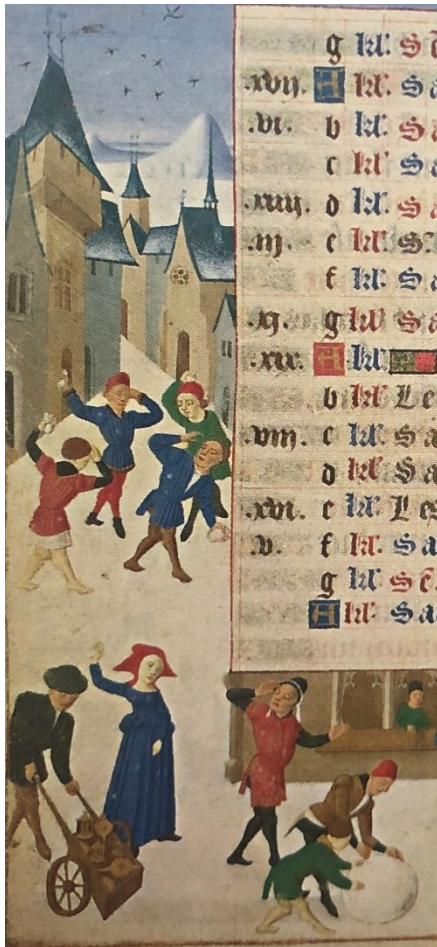 g kl'. Sē
.xvij. A kl'. Sa
.vi. b kl'. Sa
c kl' Sa
.xiiij. d kl'. Sa
.iij. e kl'. S
f kl'. Sa
.xj. g kl' Sa
.xix. A kl'
b kl' Le
.viij. c kl'. Sa
d kl' Sa
.xvi. e kl'. Les
.v. f kl'. Sa
g kl' Sē
A kl' Sa